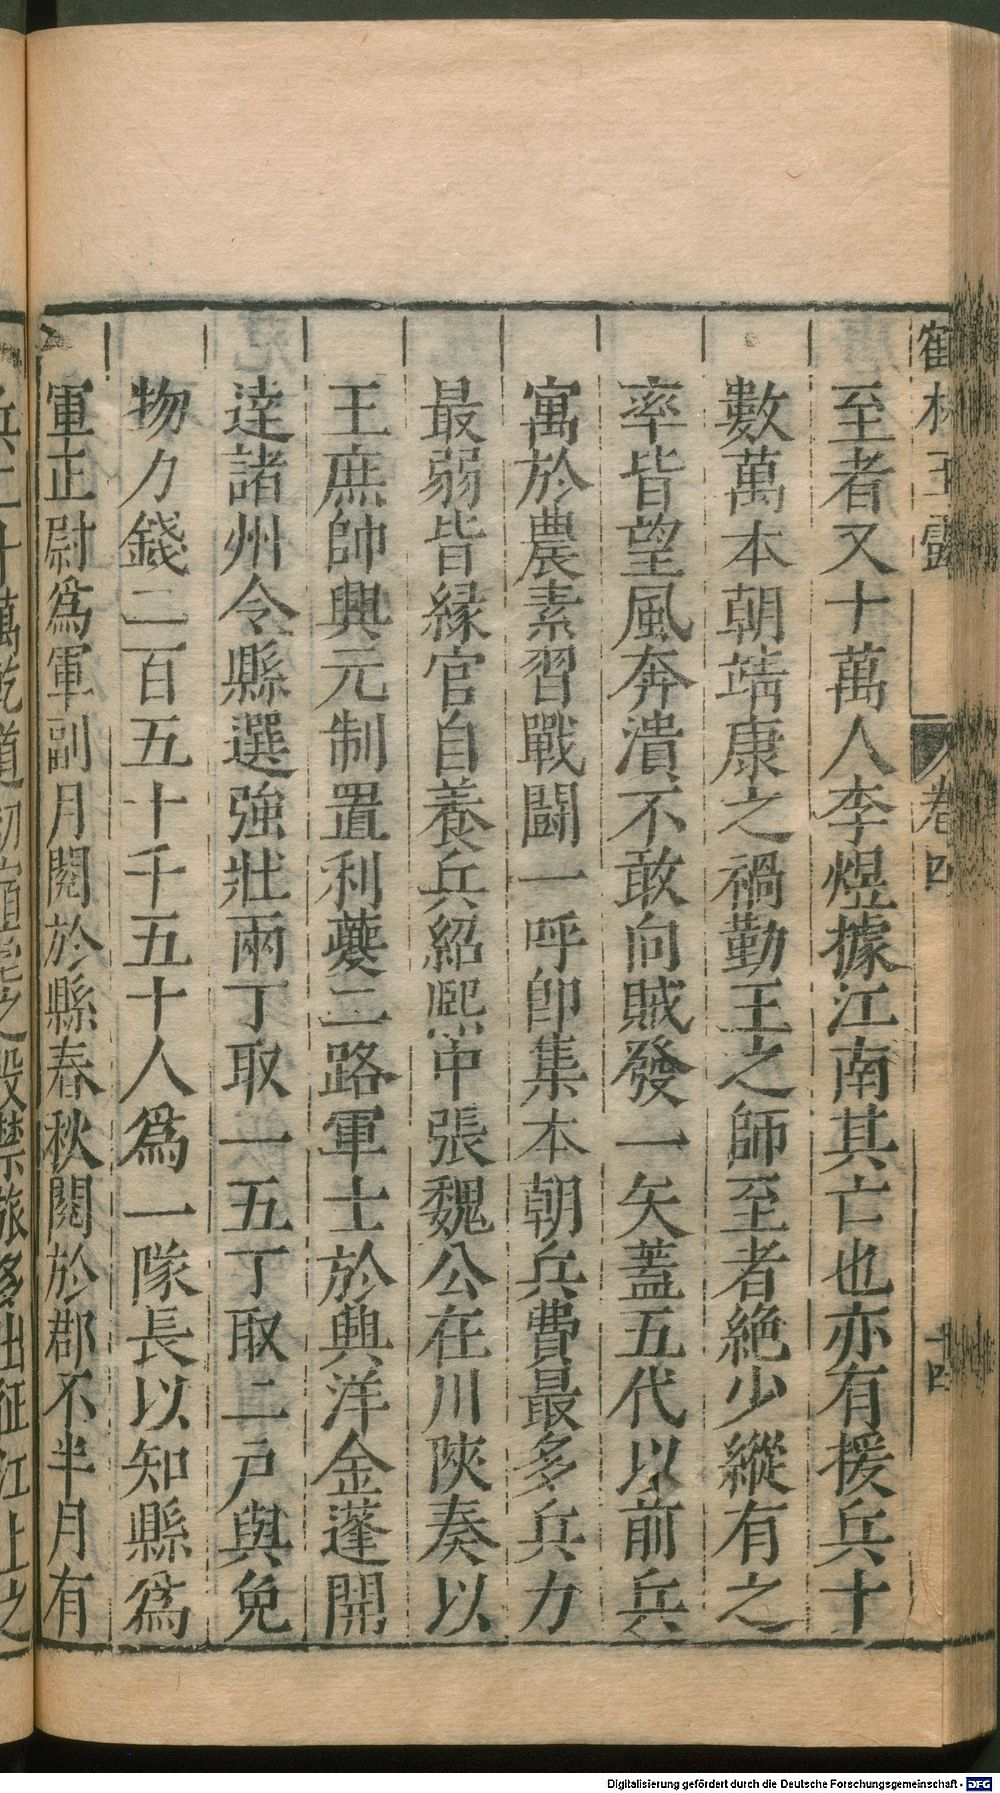 鶴林玉露 卷四 十四
至者又十萬人李煜據江南其亡也亦有援兵十
數萬本朝靖康之禍勤王之師至者絶少縱有之
率皆望風奔潰不敢向賊發一矢蓋五代以前兵
寓於農素習戰鬪一呼卽集本朝兵費最多兵力
最弱皆縁官自養兵紹熙中張魏公在川陝奏以
王庶帥興元制置利夔二路軍士於興洋金蓬開
達諸州令縣選強壯兩丁取一五丁取二戶與免
物力錢二百五十千五十人爲一隊長以知縣爲
軍正尉爲軍副月閱於縣春秋閱於郡不半月有
兵二十萬乾道初 之殿禁旅多出征江上之
Digitalisierung gefördert durch die Deutsche Forschungsgemeinschaft - DFG